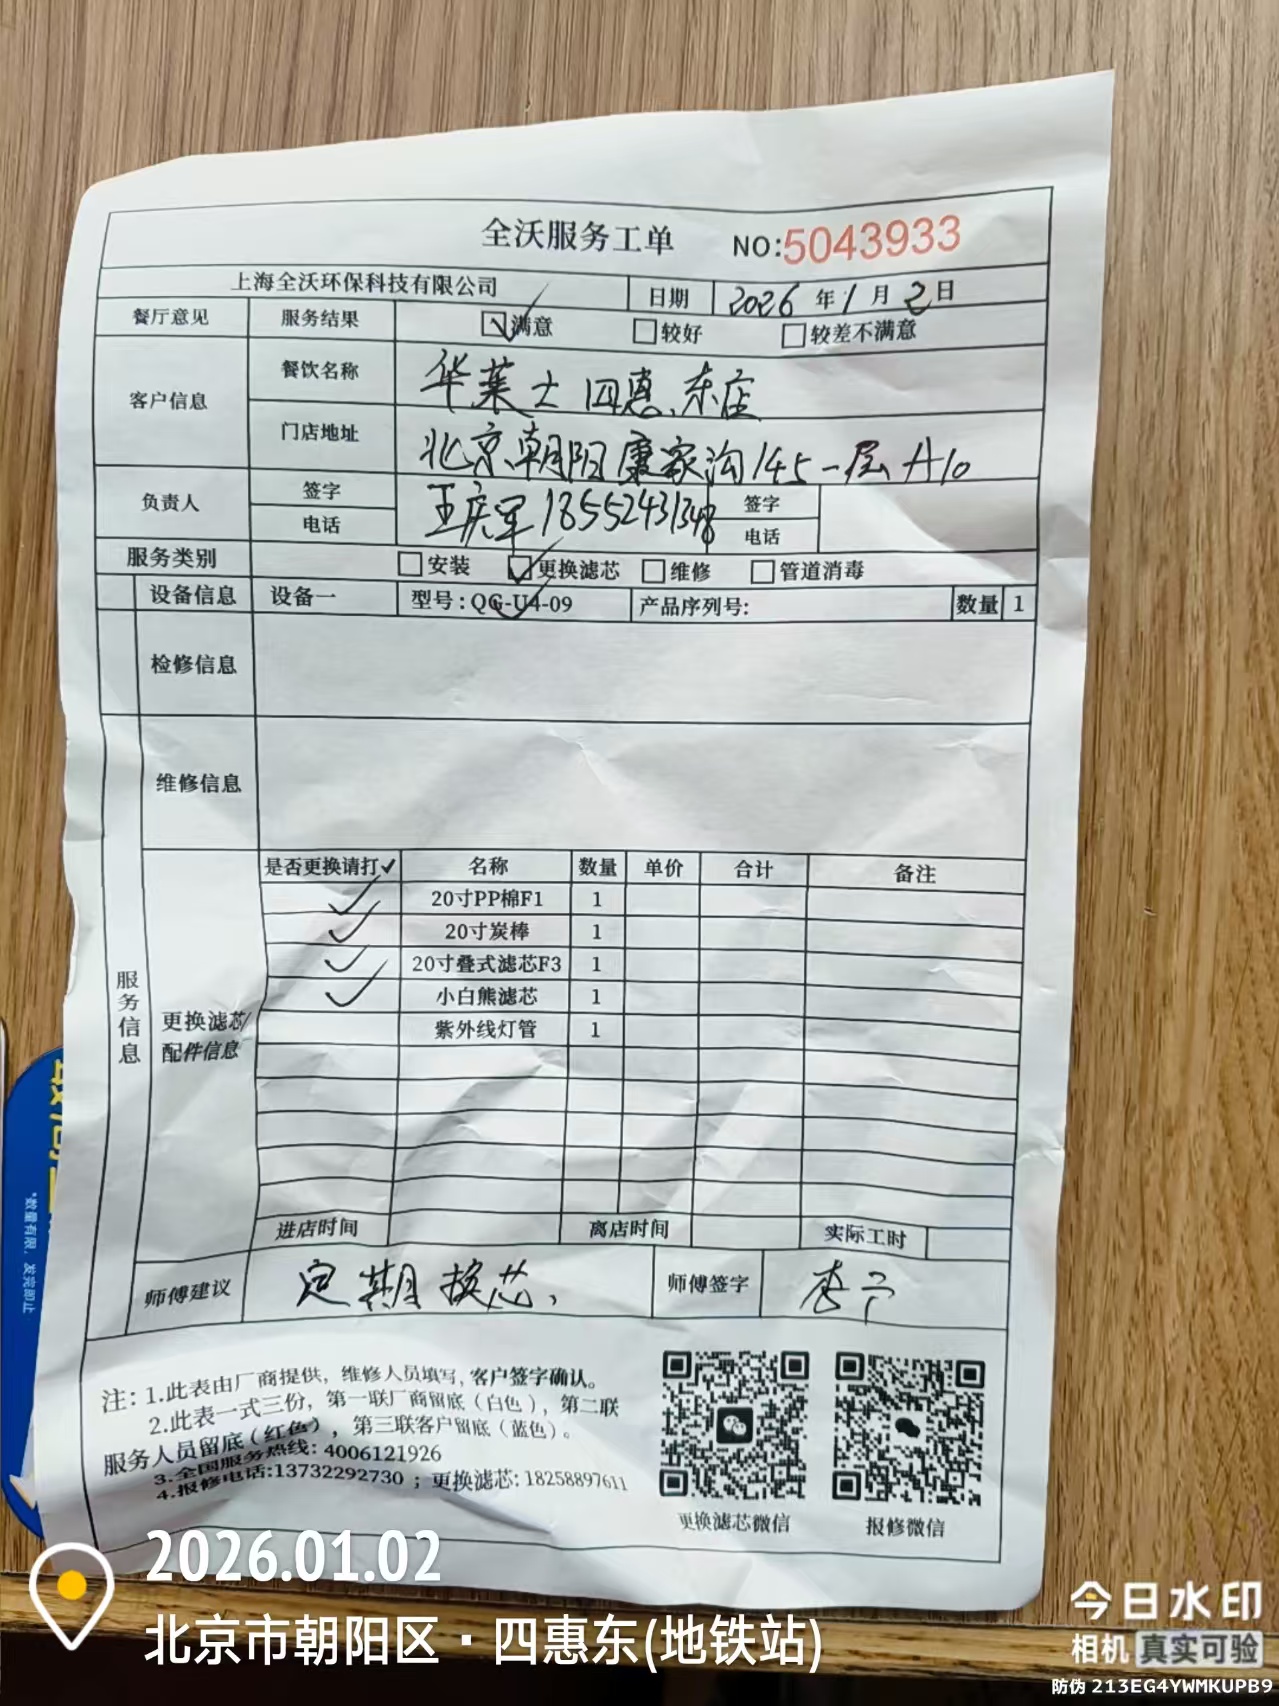 全沃服务工单 NO:5043933
上海全沃环保科技有限公司 日期 2026 年 1 月 2 日
餐厅意见 服务结果 ☑满意 □较好 □较差不满意
客户信息 餐饮名称 华莱士四惠东店
门店地址 北京朝阳康家沟145一层A10
负责人 签字 电话 王庆军 18552431348 签字 电话
服务类别 □安装 ☑更换滤芯 □维修 □管道消毒
设备信息 设备一 型号:QG-U4-09 产品序列号: 数量 1
检修信息
维修信息
服务信息
更换滤芯/配件信息
是否更换请打✓ 名称 数量 单价 合计 备注
✓ 20寸PP棉F1 1
✓ 20寸炭棒 1
✓ 20寸叠式滤芯F3 1
✓ 小白熊滤芯 1
紫外线灯管 1
进店时间 离店时间 实际工时
师傅建议 定期换芯、 师傅签字 李宁
注:1.此表由厂商提供，维修人员填写,客户签字确认。
2.此表一式三份，第一联厂商留底（白色），第二联
服务人员留底（红色），第三联客户留底（蓝色）。
3.全国服务热线: 4006121926
4.报修电话:13732292730 ；更换滤芯: 18258897611
更换滤芯微信 报修微信
2026.01.02
北京市朝阳区·四惠东(地铁站)
今日水印
相机 真实可验
防伪 213EG4YWMKUPB9
*数量有限，发完即止